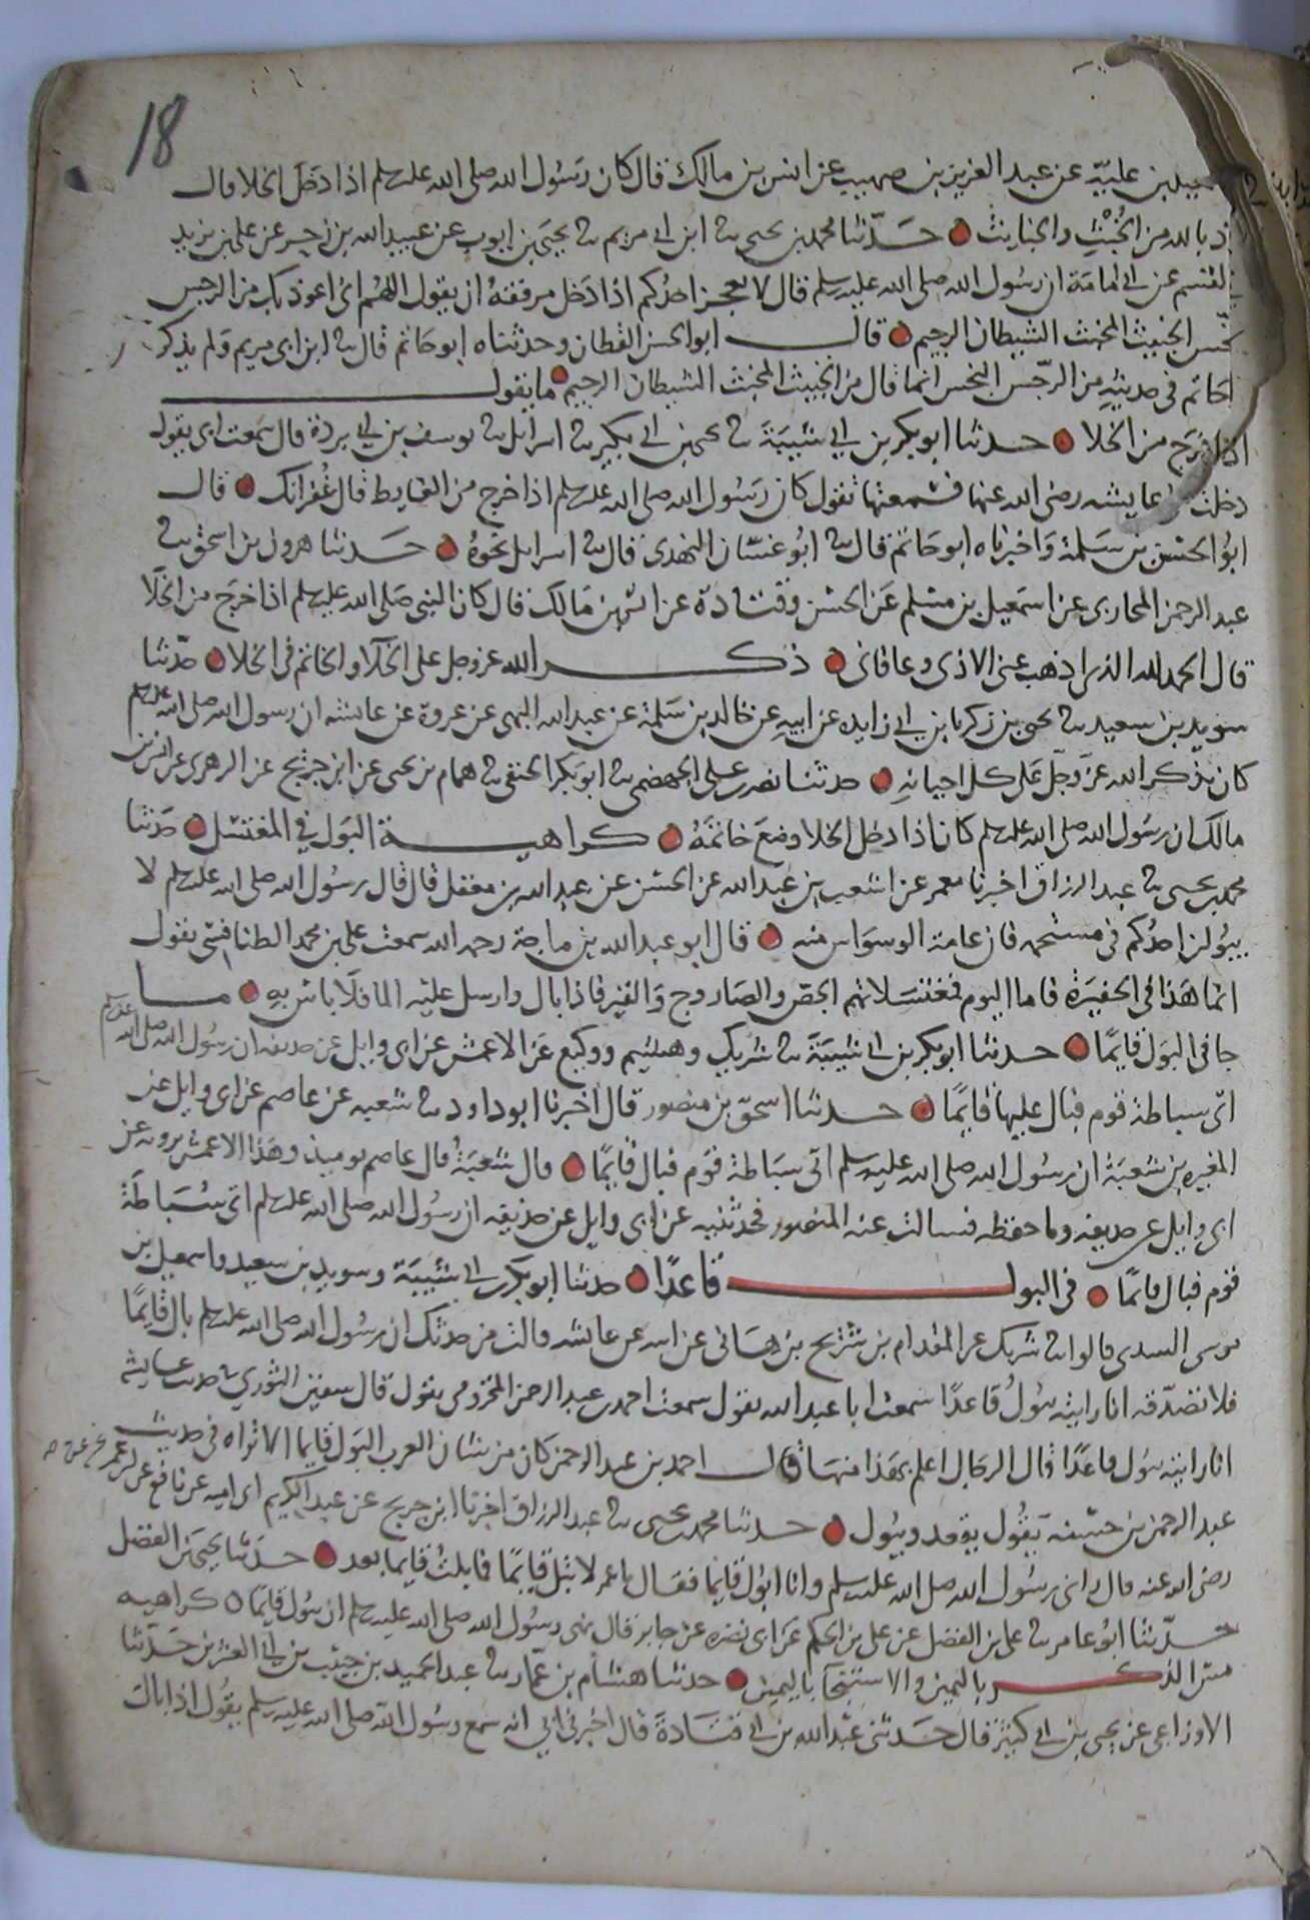 18
عيل بن علية عن عبد العزيز بن صهيب عن انس بن مالك قال كان رسول الله صلى الله علىه سلم اذا دخل الخلا قال
ذ بالله من الخبث والخبايث حدثنا محمد بن يحيى ثنا ابن ابي مريم ثنا يحيى بن ايوب عن عبيد الله بن زحر عن علي بن يزيد
القسم عن ابي امامة ان رسول الله صلى الله عليه وسلم قال لا يعجز احدكم اذا دخل مرفقه ان يقول اللهم اني اعوذ بك من الرجس
النجس الخبيث المخبث الشيطان الرجيم قال ابو الحسن القطان وحدثناه ابو حاتم قال ثنا ابن ابي مريم ولم يذكر
ابو حاتم في حديثه من الرجس النجس انما قال من الخبيث المخبث الشيطان الرجيم ما يقول
اذا خرج من الخلا حدثنا ابو بكر بن ابي شيبة ثنا يحيى بن ابي بكير ثنا اسرايل ثنا يوسف بن ابي بردة قال سمعت ابي يقول
دخلت على عايشه رضى الله عنها فسمعتها تقول كان رسول الله صلى الله عليه سلم اذا خرج من الغايط قال غفرانك قال
ابو الحسن بن سلمة واخبرناه ابو حاتم قال ثنا ابو غسان النهدى قال ثنا اسرايل نحوه حدثنا هرون بن اسحق ثنا
عبد الرحمن المحاربي عن اسمعيل بن مسلم عن الحسن وقتادة عن انس بن مالك قال كان النبي صلى الله عليه سلم اذا خرج من الخلا
قال الحمد لله الذي اذهب عني الاذى وعافاني ذكر الله عز وجل على الخلا والخاتم في الخلا حدثنا
سويد بن سعيد ثنا يحيى بن زكريا بن ابي زايده عن ابيه عن خالد بن سلمة عن عبد الله البهى عن عروة عن عايشه ان رسول الله صلى الله عليه سلم
كان يذكر الله عز وجل على كل احيانه حدثنا نصر بن على الجهضمي ثنا ابو بكر الحنفي ثنا همام بن يحيى عن ابن جريج عن الزهرى عن انس بن
مالك ان رسول الله صلى الله عليه سلم كان اذا دخل الخلا وضع خاتمه كراهية البول في المغتسل حدثنا
محمد بن يحيى ثنا عبد الرزاق اخبرنا معمر عن اشعب بن عبد الله عن الحسن عن عبد الله بن مغفل قال قال رسول الله صلى الله عليه سلم لا
يبولن احدكم في مستحمه فان عامة الوسواس منه قال ابو عبد الله بن ماجة رحمه الله سمعت على بن محمد الطنافسي يقول
انما هذا في الحفيرة فاما اليوم فمغتسلاتهم الجص والصاروج والقير فاذا بال وارسل عليه الما فلا باس به ما
جا في البول قايما حدثنا ابو بكر بن ابي شيبة ثنا شريك وهشيم ووكيع عن الاعمش عن ابي وايل عن حذيفه ان رسول الله صلى الله عليه سلم
اتى سباطة قوم فبال عليها قايما حدثنا اسحق بن منصور قال اخبرنا ابو داود ثنا شعبه عن عاصم عن ابي وايل عن
المغيره بن شعبة ان رسول الله صلى الله عليه وسلم اتى سباطة قوم فبال قايما قال شعبة قال عاصم يوميذ وهذا الاعمش يرويه عن
ابي وايل عن حذيفه وما حفظه فسالت عنه المنصور فحدثنيه عن ابي وايل عن حذيفه ان رسول الله صلى الله عليه سلم اتى سباطة
قوم فبال قايما في البول قاعدا حدثنا ابو بكر بن ابي شيبة وسويد بن سعيد واسمعيل بن
موسى السدي قالوا ثنا شريك عن المقدام بن شريح بن هانى عن ابيه عن عايشه قالت من حدثك ان رسول الله صلى الله عليه سلم بال قايما
فلا تصدقه انا رايته يبول قاعدا سمعت ابا عبد الله يقول سمعت احمد بن عبد الرحمن المخزومى يقول قال سفين الثوري في حديث عايشه
انا رايته يبول قاعدا قال الرجال اعلم بهذا منها قال احمد بن عبد الرحمن كان من شان العرب البول قايما الا تراه في حديث
عبد الرحمن بن حسنه يقول يقعد ويبول حدثنا محمد بن يحيى ثنا عبد الرزاق اخبرنا ابن جريج عن عبد الكريم ابي اميه عن نافع عن ابن عمر عن عمر
رضى الله عنه قال راني رسول الله صلى الله عليه وسلم وانا ابول قايما فقال يا عمر لا تبل قايما فما بلت قايما بعد حدثنا يحيى بن الفضل
حدثنا ابو عامر ثنا على بن الفضل عن على بن الحكم عن ابي نضره عن جابر قال نهى رسول الله صلى الله عليه وسلم ان يبول قايما كراهيه
مس الذكر باليمين والاستنجا باليمين حدثنا هشام بن عمار ثنا عبد الحميد بن حبيب بن ابي العشرين حدثنا
الاوزاعي عن يحيى بن ابي كثير قال حدثني عبد الله بن ابي قتادة قال اخبرني ابي انه سمع رسول الله صلى الله عليه وسلم يقول اذا بال